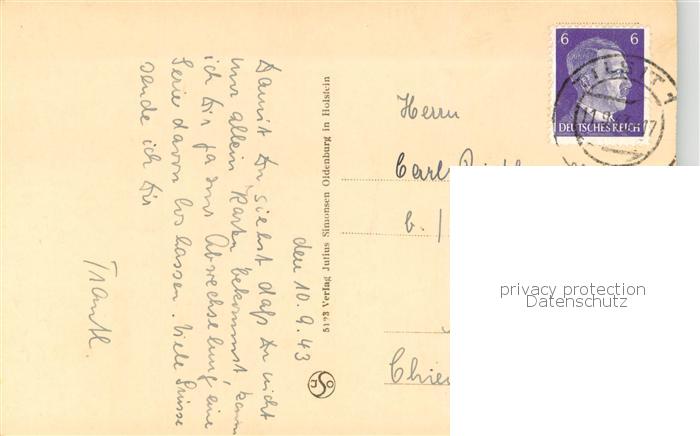 den 10.9.43
Damit Du siehst daß Du nicht
nur allein Karten bekommst, kann
ich Dir ja zur Abwechselung eine
Serie davon los lassen. Viele Grüsse
sende ich Dir
Trautl.
5123 Verlag Julius Simonsen Oldenburg in Holstein
JSO
6 6
DEUTSCHES REICH
TILSIT 1
Herrn
Carl
b. /
Chie
privacy protection
Datenschutz